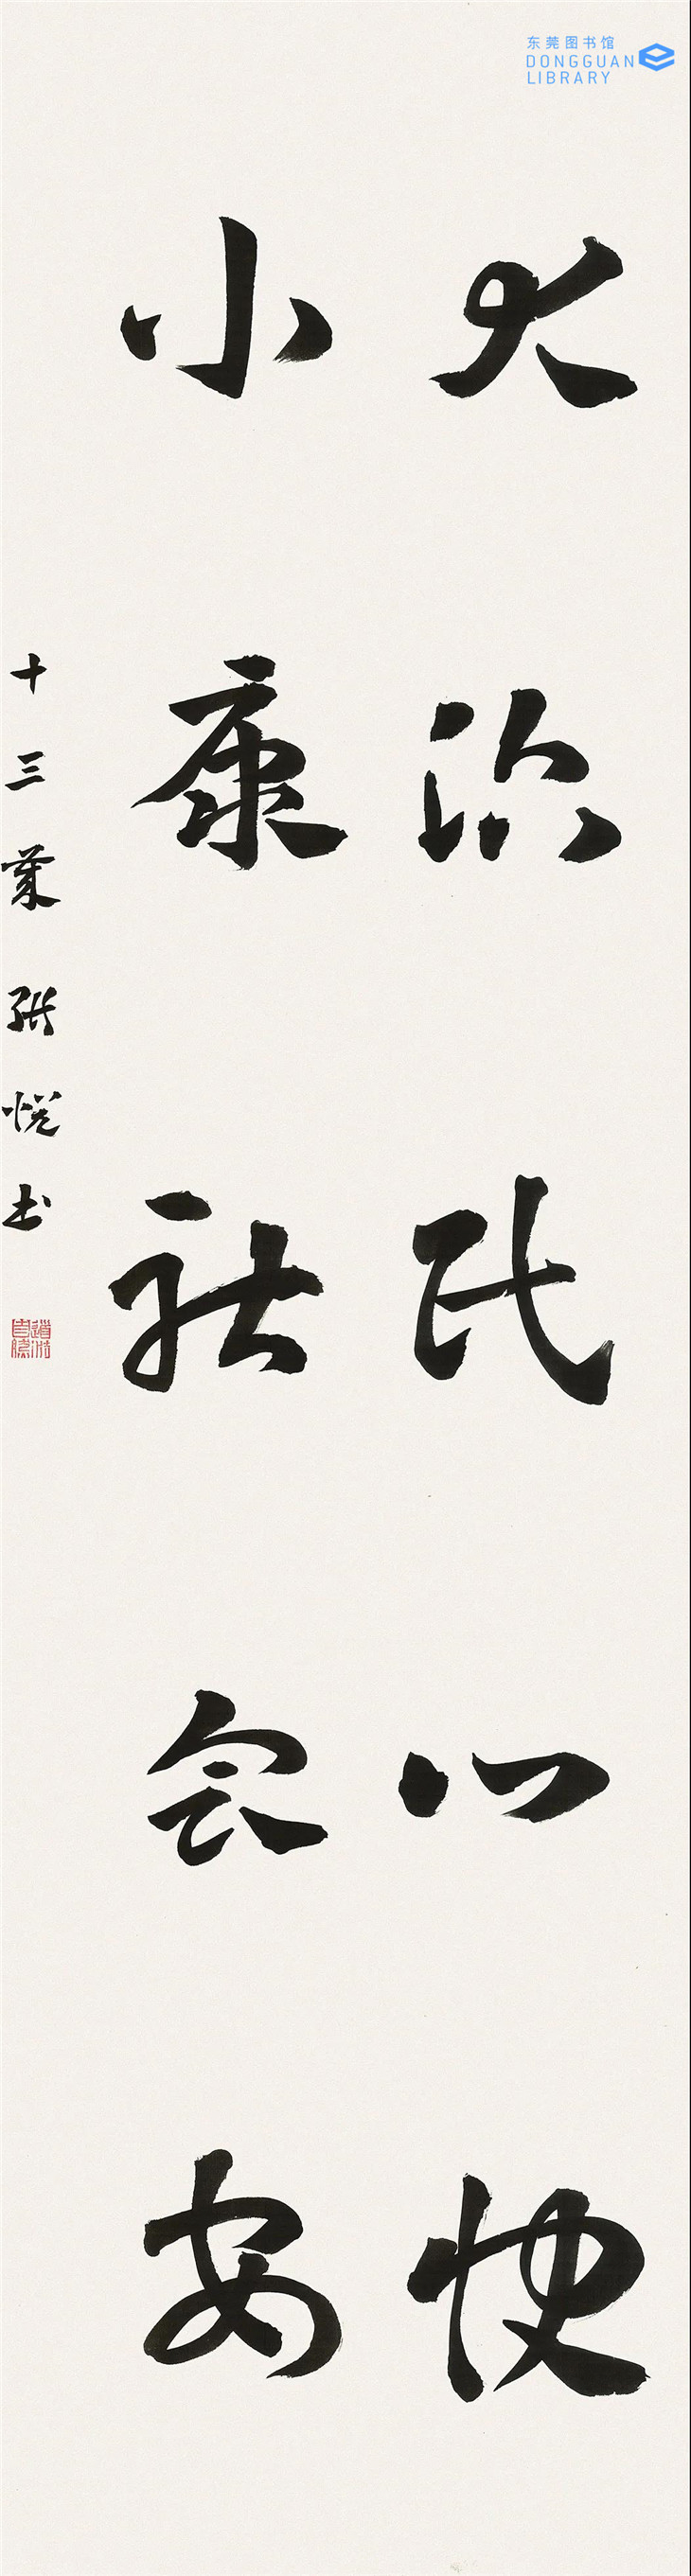 东莞图书馆
DONGGUAN
LIBRARY
大治民心快
小康社会安
十三叶 张悦书